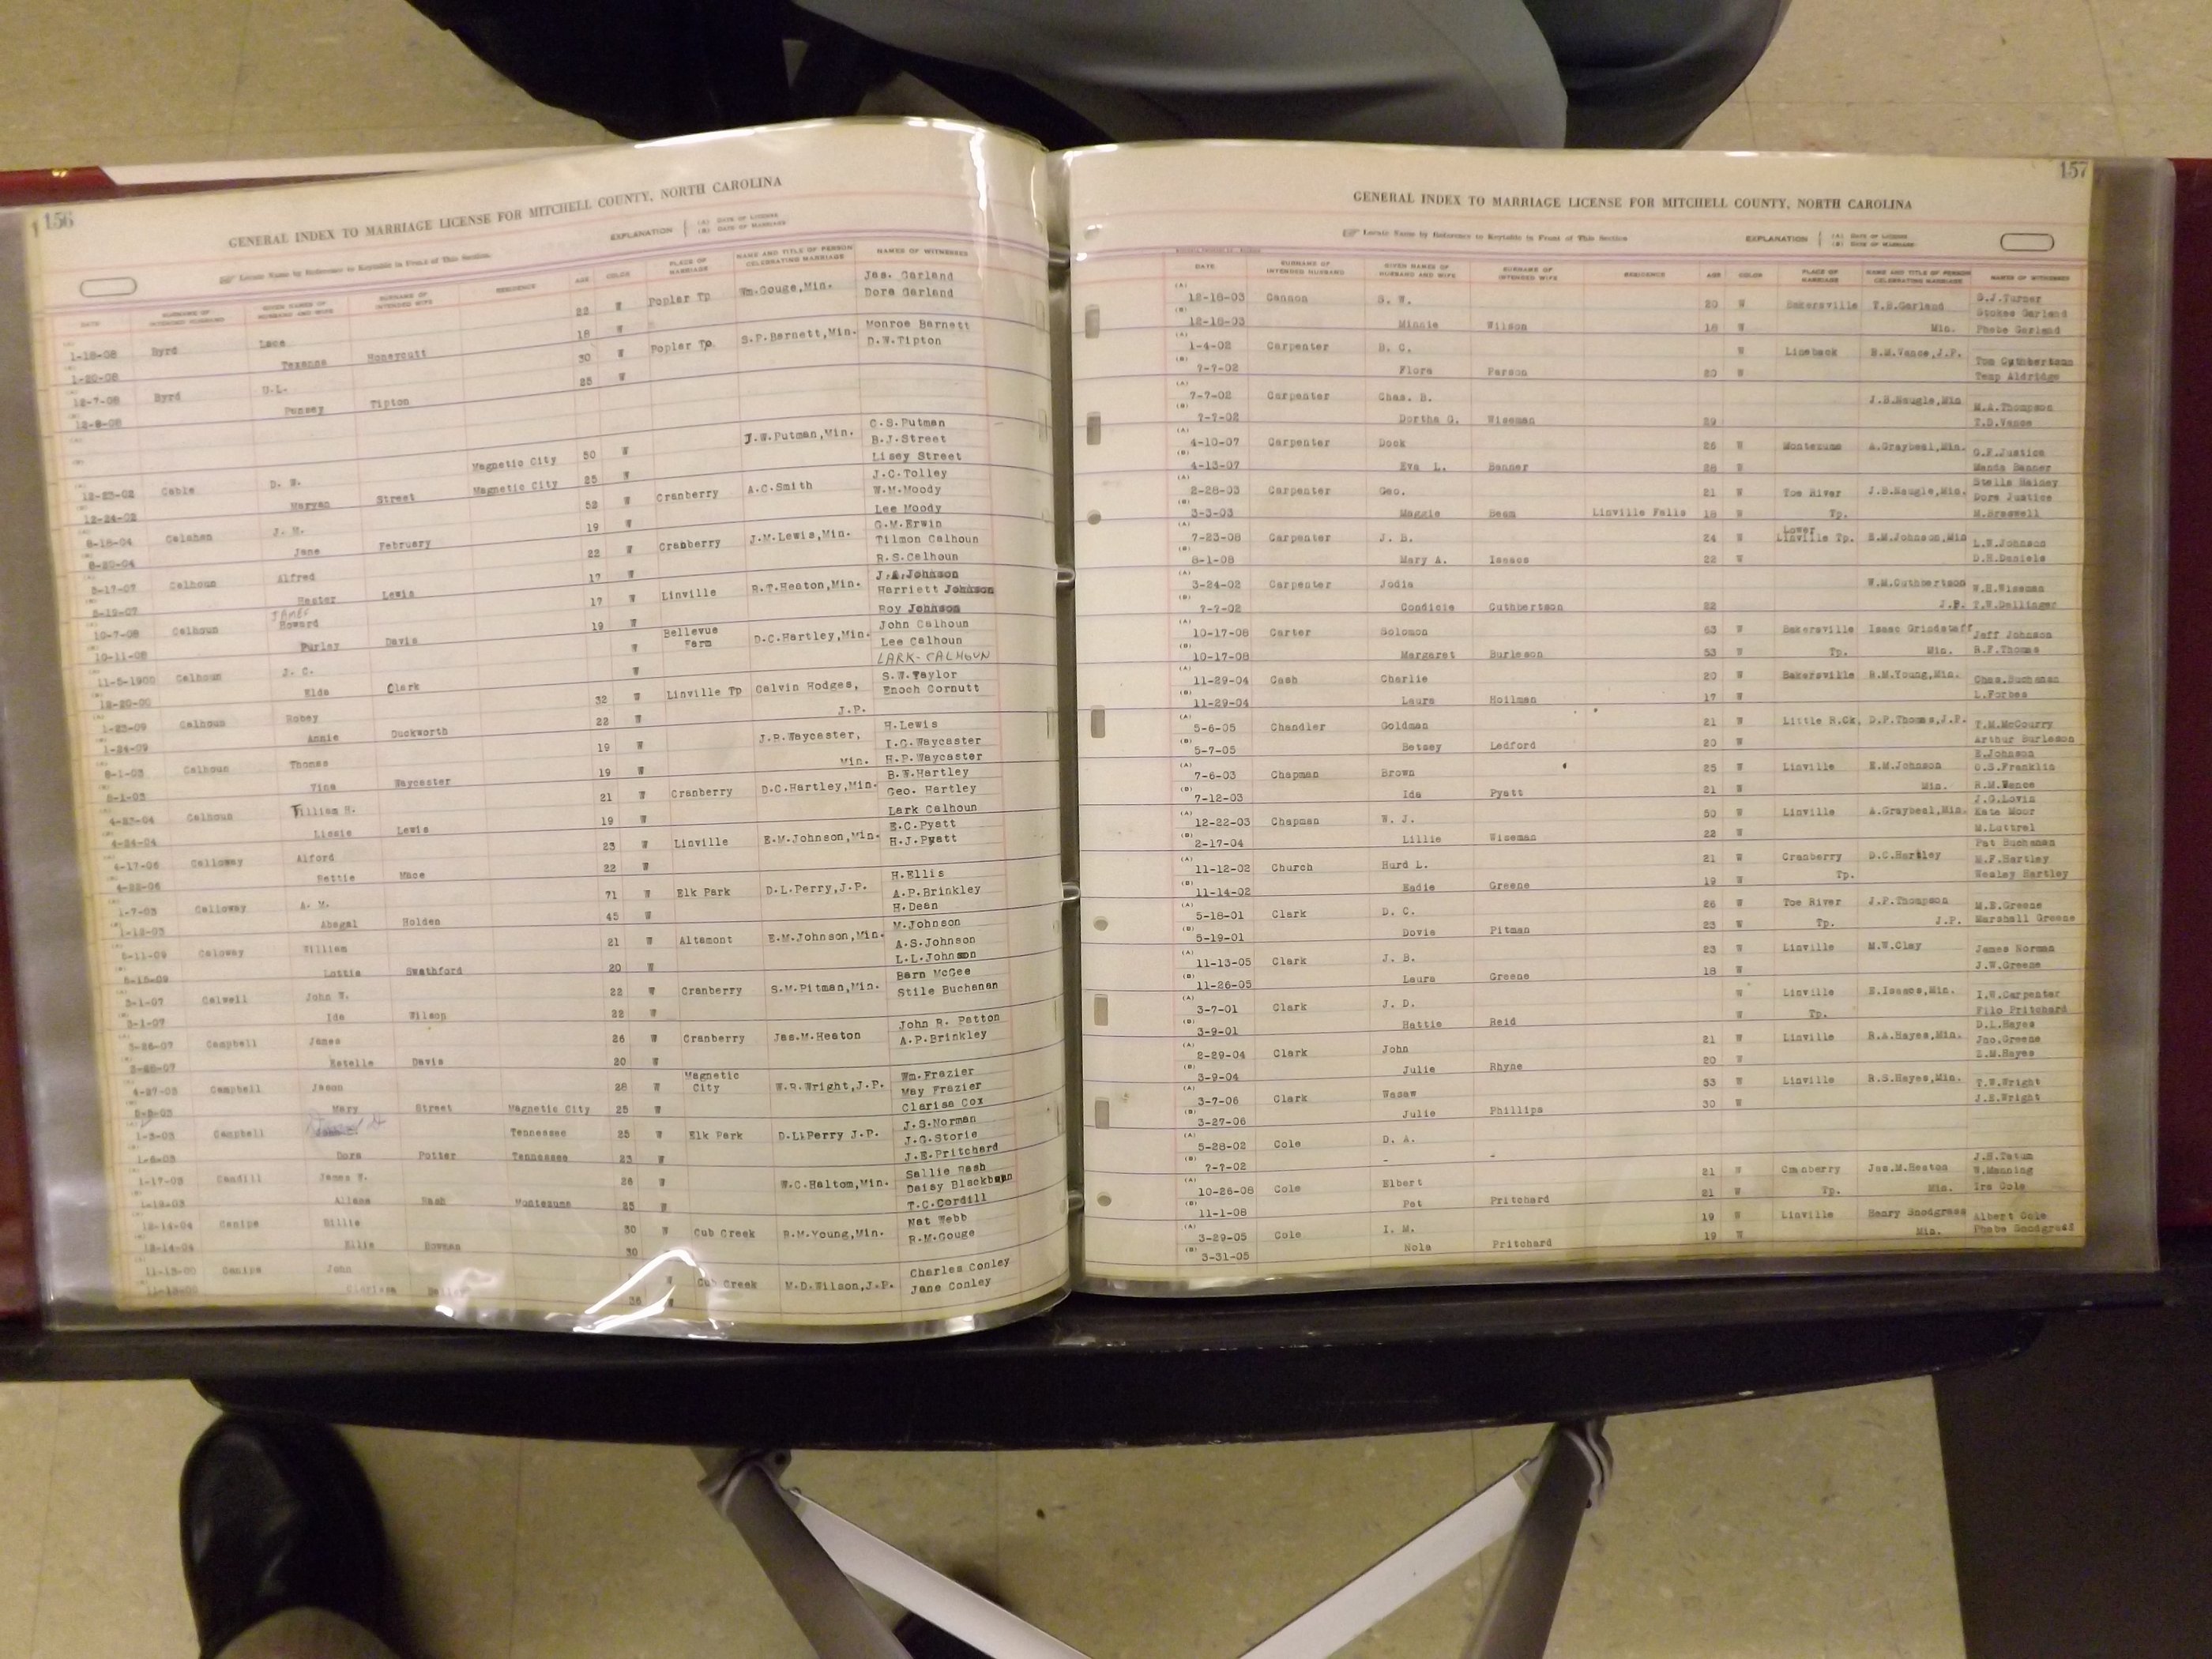 156
GENERAL INDEX TO MARRIAGE LICENSE FOR MITCHELL COUNTY, NORTH CAROLINA
Locate Name by Reference to Keytable in Front of This Section.
EXPLANATION (A) DATE OF LICENSE
(B) DATE OF MARRIAGE
DATE SURNAME OF INTENDED HUSBAND GIVEN NAMES OF HUSBAND AND WIFE SURNAME OF INTENDED WIFE RESIDENCE AGE COLOR PLACE OF MARRIAGE NAME AND TITLE OF PERSON CELEBRATING MARRIAGE NAMES OF WITNESSES
1-18-08 Byrd 22 W Poplar Tp Wm.Gouge,Min. Jas. Garland
1-20-08 Texanna Honeycutt 18 W Dora Garland
12-7-08 Byrd 30 W Poplar Tp. S.P.Barnett,Min. Monroe Barnett
12-8-08 Pansey Tipton 25 W D.W.Tipton
12-23-02 Cable D. W. Magnetic City 50 W J.W.Putman,Min. C.S.Putman
B.J.Street
12-24-02 Maryan Street Magnetic City 25 W Lisey Street
8-18-04 Calahan J. M. 52 W Cranberry A.C.Smith J.C.Tolley
W.M.Moody
8-20-04 Jane February 19 W Lee Moody
5-17-07 Calhoun Alfred 22 W Cranberry J.M.Lewis,Min. G.M.Erwin
Tilmon Calhoun
5-19-07 Hester Lewis 17 W R.S.Calhoun
JAMES
10-7-08 Calhoun Howard 17 W Linville R.T.Heaton,Min. J.A.Johnson
Harriett Johnson
10-11-08 Purley Davis 19 W Roy Johnson
11-5-1900 Calhoun J. C. W Bellevue Farm D.C.Hartley,Min. John Calhoun
Lee Calhoun
12-20-00 Elda Clark W LARK-CALHOUN
1-23-09 Calhoun Robey 32 W Linville Tp Calvin Hodges, S.W.Taylor
Enoch Cornutt
1-24-09 Annie Duckworth 22 W J.P.
8-1-03 Calhoun Thomas 19 W J.R.Waycaster, H.Lewis
I.G.Waycaster
8-1-03 Vina Waycaster 19 W Min. H.P.Waycaster
4-23-04 Calhoun William H. 21 W Cranberry D.C.Hartley,Min. B.W.Hartley
Geo. Hartley
4-24-04 Lissie Lewis 19 W Lark Calhoun
4-17-06 Calloway Alford 23 W Linville E.M.Johnson,Min. E.C.Pyatt
H.J.Pyatt
4-22-06 Bettie Mace 22 W
1-7-03 Calloway A. M. 71 W Elk Park D.L.Perry,J.P. H.Ellis
A.P.Brinkley
1-12-03 Abagal Holden 45 W H.Dean
8-11-09 Caloway William 21 W Altamont E.M.Johnson,Min. M.Johnson
A.S.Johnson
8-15-09 Lottie Swathford 20 W L.L.Johnson
3-1-07 Calwell John W. 22 W Cranberry S.M.Pitman,Min. Barn McGee
Stile Buchanan
3-1-07 Ida Wilson 22 W
3-26-07 Campbell James 26 W Cranberry Jas.M.Heaton John R. Patton
A.P.Brinkley
3-26-07 Estelle Davis 20 W
4-27-03 Campbell Jason 28 W Magnetic City W.R.Wright,J.P. Wm.Frazier
May Frazier
Mary Street Magnetic City 25 W Clarisa Cox
1-3-03 Campbell Tennessee 25 W Elk Park D.L.Perry J.P. J.S.Norman
J.G.Storie
1-6-03 Dora Potter Tennessee 23 W J.E.Pritchard
1-17-03 Candill James W. 26 W W.C.Haltom,Min. Sallie Nash
Daisy Blackburn
1-19-03 Allana Nash Montezuma 25 W T.C.Cordill
12-14-04 Canipe Billie 30 W Cub Creek R.M.Young,Min. Nat Webb
R.M.Gouge
12-14-04 Ellie Bowman 30
11-13-00 Canipe John W Cub Creek M.D.Wilson,J.P. Charles Conley
Clarissa W Jane Conley
157
GENERAL INDEX TO MARRIAGE LICENSE FOR MITCHELL COUNTY, NORTH CAROLINA
Locate Name by Reference to Keytable in Front of This Section
EXPLANATION (A) DATE OF LICENSE
(B) DATE OF MARRIAGE
DATE SURNAME OF INTENDED HUSBAND GIVEN NAMES OF HUSBAND AND WIFE SURNAME OF INTENDED WIFE RESIDENCE AGE COLOR PLACE OF MARRIAGE NAME AND TITLE OF PERSON CELEBRATING MARRIAGE NAMES OF WITNESSES
12-18-03 Cannon S. W. 20 W Bakersville T.S.Garland G.J.Turner
Stokes Garland
12-18-03 Minnie Wilson 18 W Min. Phebe Garland
1-4-02 Carpenter B. C. W Lineback R.M.Vance,J.P. Tom Cuthbertson
7-7-02 Flora Parson 20 W Temp Aldridge
7-7-02 Carpenter Chas. B. J.B.Naugle,Min M.A.Thompson
7-7-02 Dortha G. Wiseman 29 T.D.Vance
4-10-07 Carpenter Dock 26 W Montezuma A.Graybeal,Min. G.F.Justice
4-13-07 Eva L. Banner 28 W Manda Banner
2-28-03 Carpenter Geo. 21 W Toe River J.B.Naugle,Min. Stella Hainey
Dora Justice
3-3-03 Maggie Beam Linville Falls 18 W Tp. M.Braswell
7-23-08 Carpenter J. B. 24 W Lower Linville Tp. E.M.Johnson,Min L.W.Johnson
8-1-08 Mary A. Isaacs 22 W D.H.Daniels
3-24-02 Carpenter Jodia W.M.Cuthbertson W.H.Wiseman
7-7-02 Condicie Cuthbertson 22 J.P. T.W.Dellinger
10-17-08 Carter Solomon 63 W Bakersville Isaac Grindstaff Jeff Johnson
10-17-08 Margaret Burleson 53 W Tp. Min. R.F.Thomas
11-29-04 Cash Charlie 20 W Bakersville R.M.Young,Min. Chas.Buchanan
11-29-04 Laura Hoilman 17 W L.Forbes
5-6-05 Chandler Goldman 21 W Little R.Ck. D.P.Thomas,J.P. T.M.McCourry
5-7-05 Betsey Ledford 20 W Arthur Burleson
E.Johnson
7-6-03 Chapman Brown 25 W Linville E.M.Johnson G.S.Franklin
7-12-03 Ida Pyatt 21 W Min. R.M.Vance
J.G.Lovin
12-22-03 Chapman W. J. 50 W Linville A.Graybeal,Min. Kate Moor
2-17-04 Lillie Wiseman 22 W M.Luttrel
Pat Buchanan
11-12-02 Church Hurd L. 21 W Cranberry D.C.Hartley M.F.Hartley
11-14-02 Eadie Greene 19 W Tp. Wesley Hartley
5-18-01 Clark D. C. 26 W Toe River J.P.Thompson M.E.Greene
5-19-01 Dovie Pitman 23 W Tp. J.P. Marshall Greene
11-13-05 Clark J. B. 23 W Linville M.W.Clay James Norman
11-26-05 Laura Greene 18 W J.W.Greene
3-7-01 Clark J. D. W Linville E.Isaacs,Min. I.W.Carpenter
3-9-01 Hattie Reid W Tp. Filo Pritchard
D.L.Hayes
2-29-04 Clark John 21 W Linville R.A.Hayes,Min. Jno.Greene
3-9-04 Julie Rhyne 20 W Z.M.Hayes
3-7-06 Clark Wasaw 53 W Linville R.S.Hayes,Min. T.W.Wright
3-27-06 Julie Phillips 30 W J.E.Wright
5-28-02 Cole D. A.
7-7-02 - -
J.H.Tatum
10-26-08 Cole Elbert 21 W Cranberry Jas.M.Heaton W.Manning
11-1-08 Pet Pritchard 21 W Tp. Min. Ira Cole
3-29-05 Cole I. M. 19 W Linville Henry Snodgrass Albert Cole
3-31-05 Nola Pritchard 19 W Min. Phebe Snodgrass